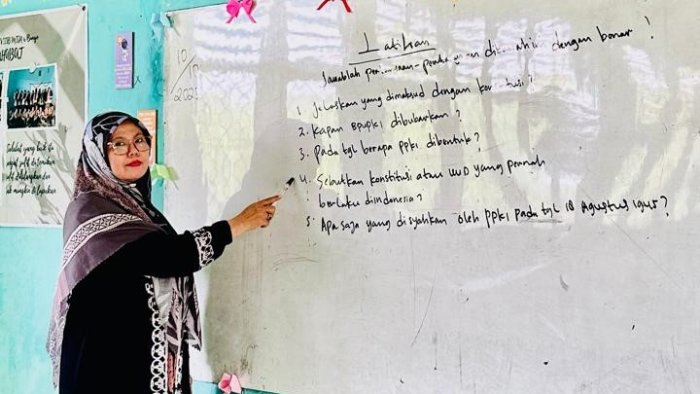 10/10
2023
Latihan
Jawablah dengan benar !
1. Jelaskan yang dimaksud dengan
2. Kapan BPUPKI dibubarkan ?
3. Pada tgl berapa PPKI dibentuk ?
4. Sebutkan konstitusi atau UUD yang pernah
berlaku diindonesia ?
5. Apa saja yang disyahkan oleh PPKI pada tgl 18 Agustus 1945 ?
Sahabat yang baik itu